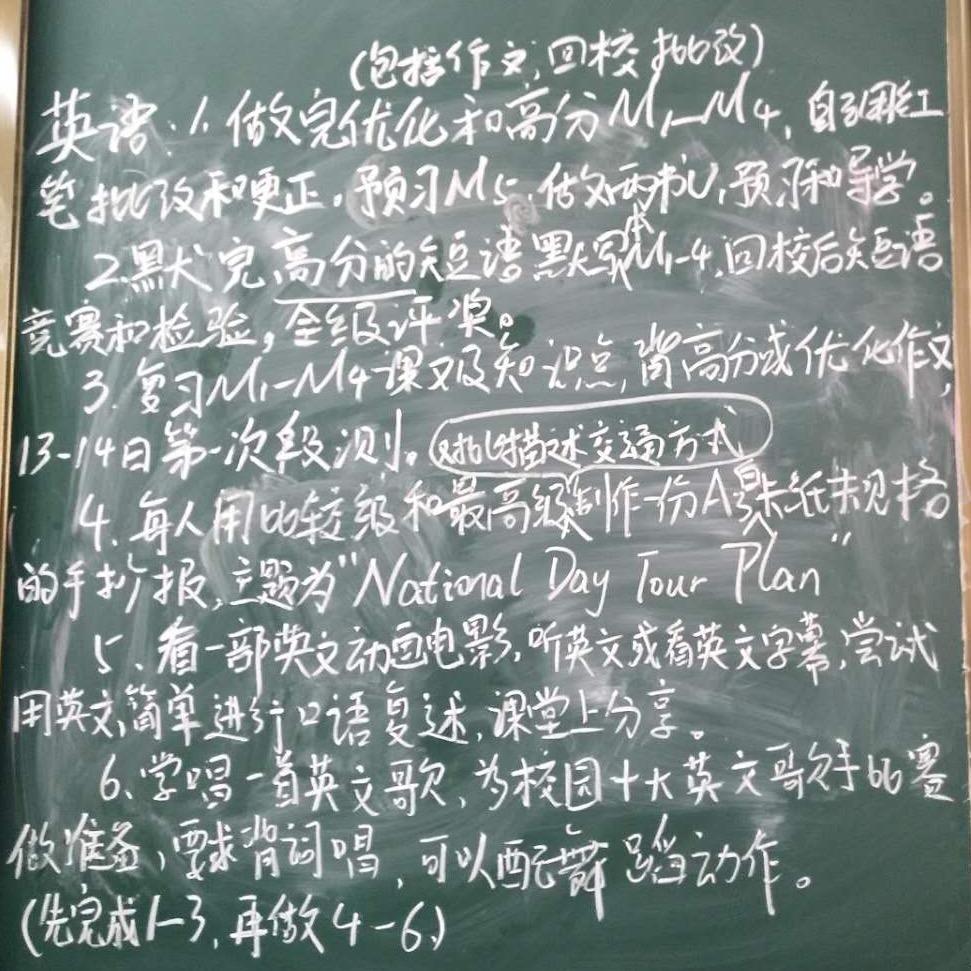 (包括作文,回校批改)
英语:1.做完优化和高分M1—M4,自己用红
笔批改和更正。预习M5,做两书U1,预习和导学。
2.默完高分的短语默写本M1-4,回校后短语
竞赛和检验,全级评奖。
3.复习M1-M4课文及知识点,背高分或优化作文,
13-14日第一次段测。对比描述交通方式
4.每人用比较级和最高级制作一份A3纸规格
的手抄报,主题为"National Day Tour Plan"
5、看一部英文动画电影,听英文或看英文字幕,尝试
用英文简单进行口语复述,课堂上分享。
6、学唱一首英文歌,为校园十大英文歌手比赛
做准备,要求背词唱,可以配舞蹈动作。
(先完成1-3,再做4-6)